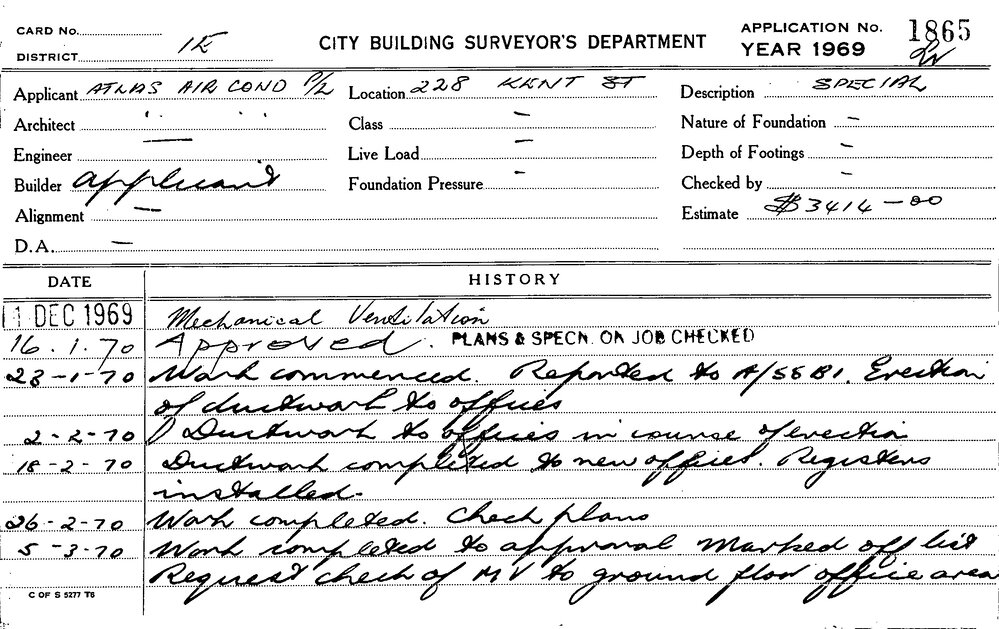 CARD No.
DISTRICT 1E
CITY BUILDING SURVEYOR'S DEPARTMENT
APPLICATION No. 1865
YEAR 1969
Applicant ATLAS AIR COND P/L
Location 228 KENT ST
Description SPECIAL
Architect " "
Class –
Nature of Foundation –
Engineer —
Live Load –
Depth of Footings –
Builder applicant
Foundation Pressure –
Checked by –
Alignment —
Estimate $3414-00
D.A. —
DATE HISTORY
11 DEC 1969 Mechanical Ventilation
16.1.70 Approved. PLANS & SPECN. ON JOB CHECKED
23-1-70 Work commenced. Reported to A/SSBI. Erection
of ductwork to offices
2-2-70 Ductwork to offices in course of erection
18-2-70 Ductwork completed to new offices. Registers
installed.
26-2-70 Work completed. Check plans
5-3-70 Work completed to approval Marked off list
Request check of MV to ground floor office area
C OF S 5277 T6